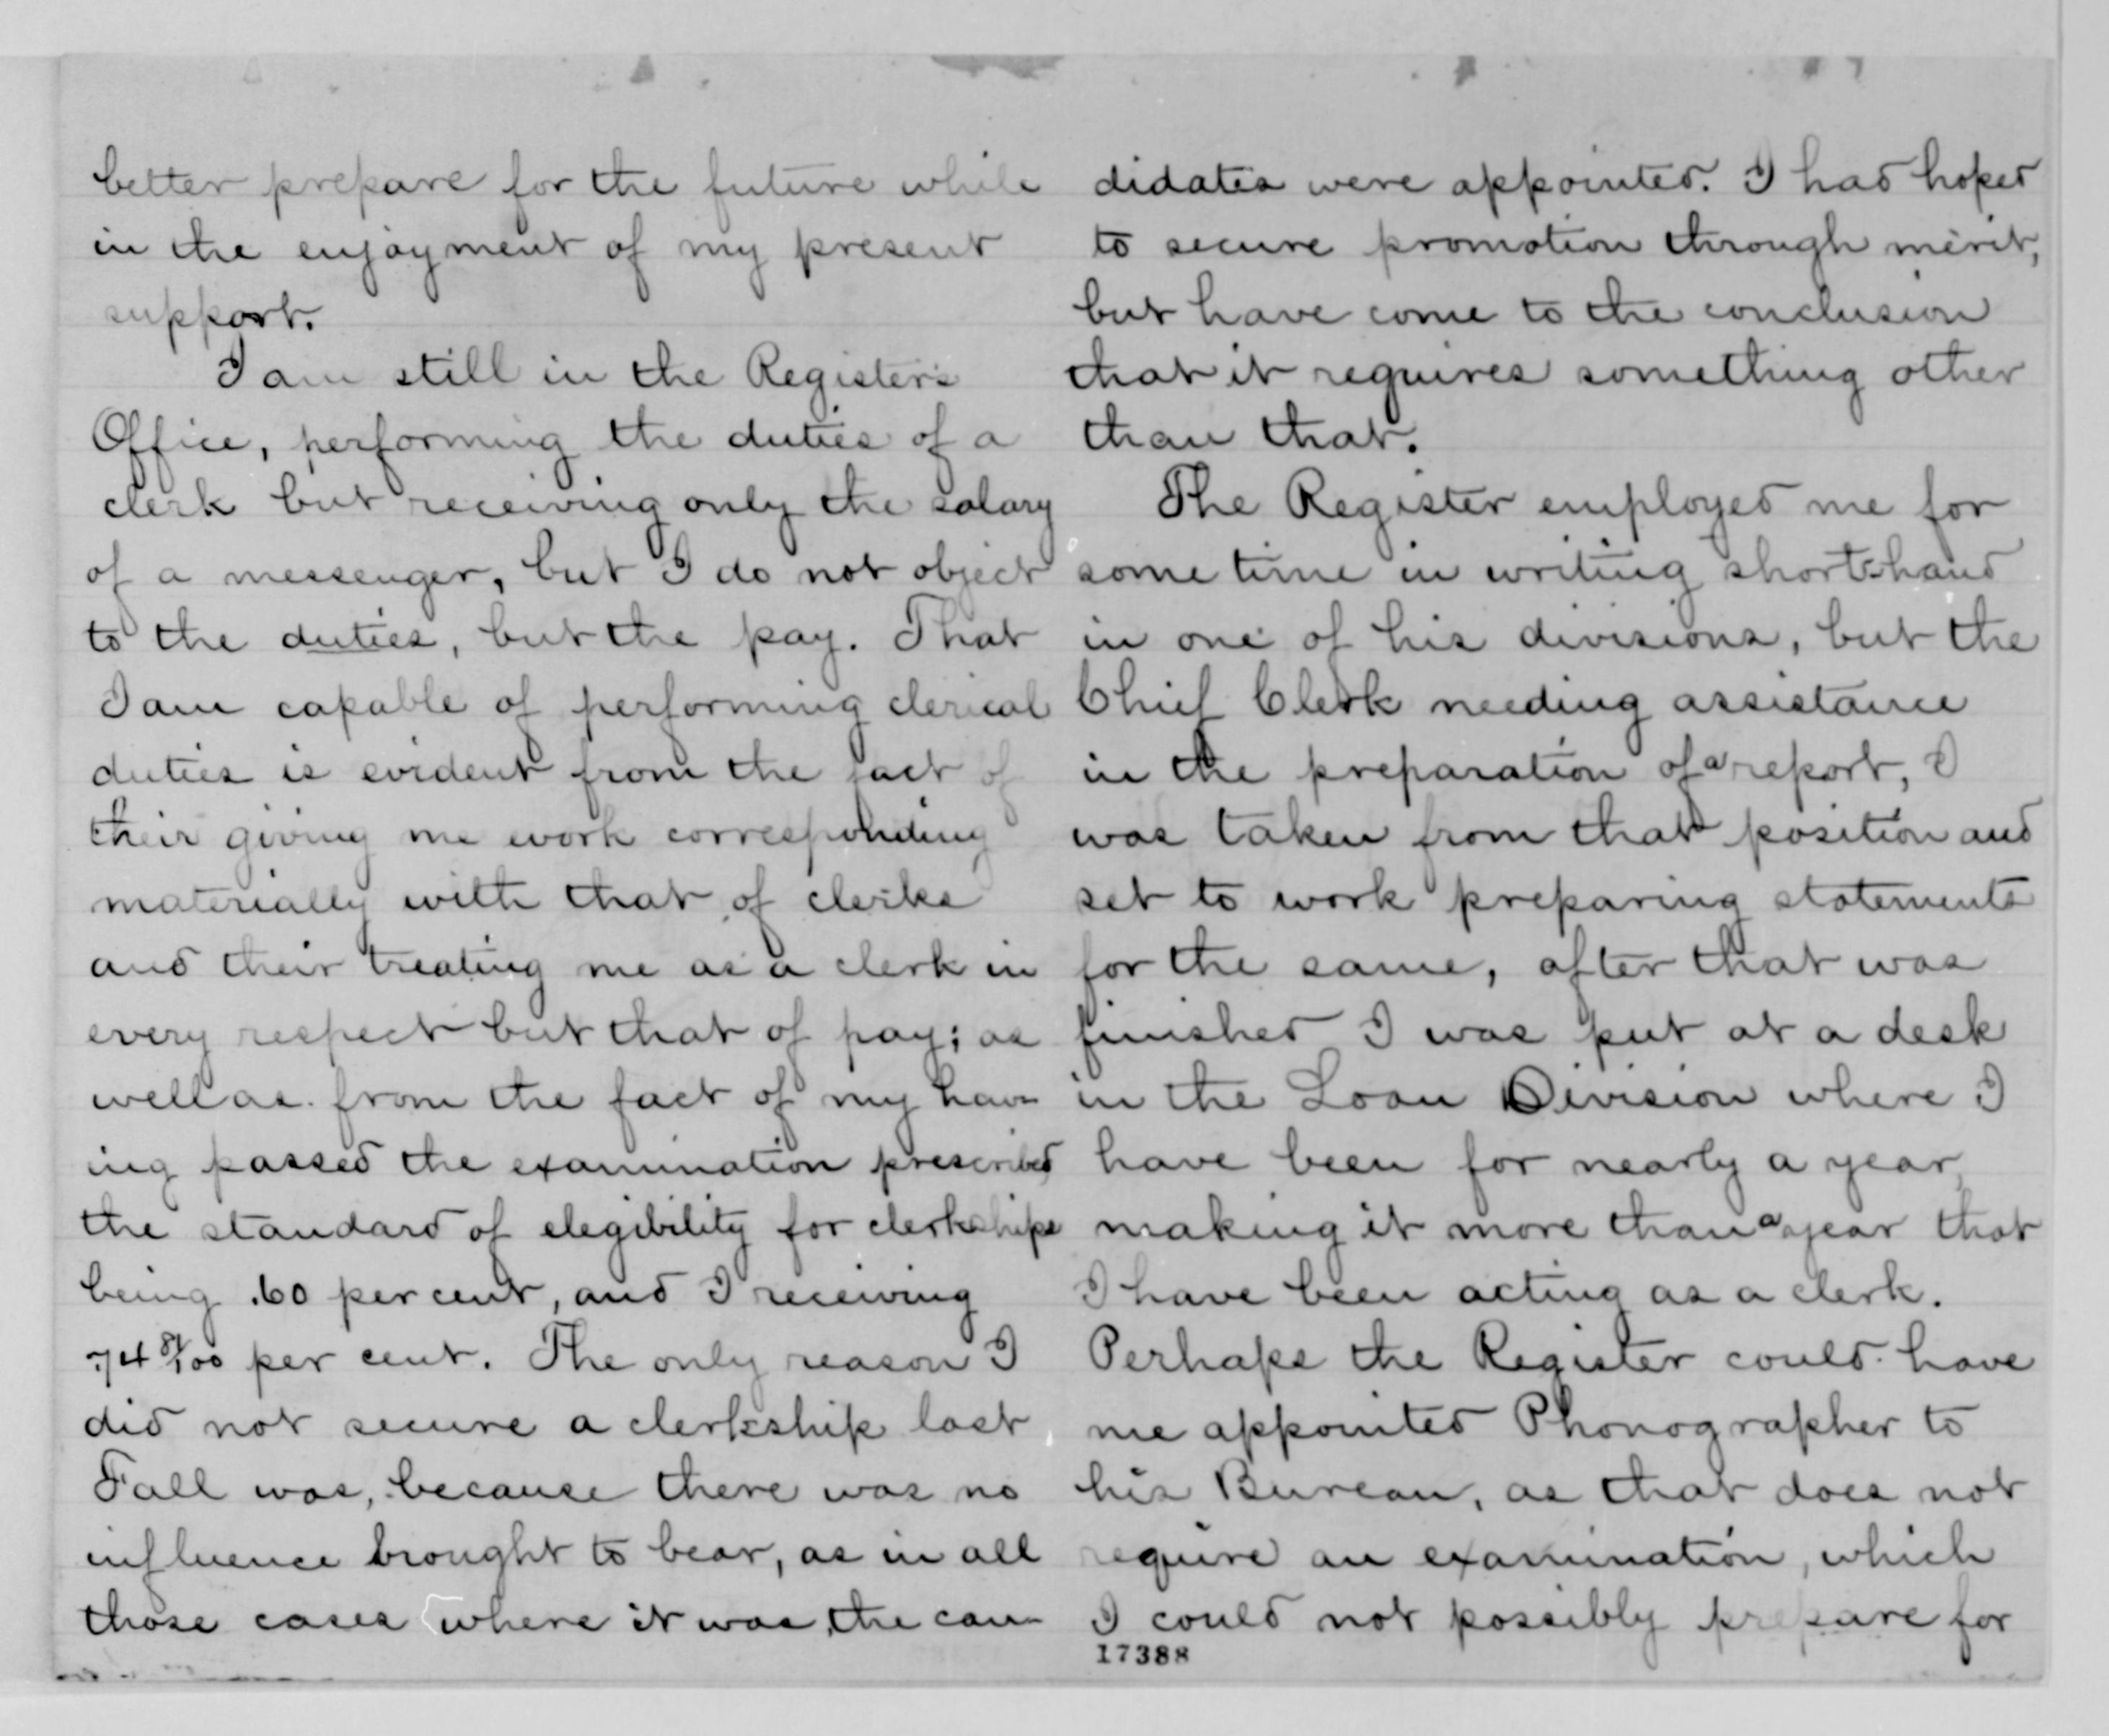 better prepare for the future while
in the enjoyment of my present
support.
I am still in the Register's
Office, performing the duties of a
clerk but receiving only the salary
of a messenger, but I do not object
to the duties, but the pay. That
I am capable of performing clerical
duties is evident from the fact of
their giving me work corresponding
materially with that of clerks
and their treating me as a clerk in
every respect but that of pay; as
well as from the fact of my hav-
ing passed the examination prescribed
the standard of elegibility for clerkships
being .60 per cent, and I receiving
.74 81/100 per cent. The only reason I
did not secure a clerkship last
Fall was, because there was no
influence brought to bear, as in all
those cases where it was, the can-
didates were appointed. I had hoped
to secure promotion through merit,
but have come to the conclusion
that it requires something other
than that.
The Register employed me for
some time in writing short-hand
in one of his divisions, but the
Chief Clerk needing assistance
in the preparation of a report, I
was taken from that position and
set to work preparing statements
for the same, after that was
finished I was put at a desk
in the Loan Division where I
have been for nearly a year,
making it more than a year that
I have been acting as a clerk.
Perhaps the Register could have
me appointed Phonographer to
his Bureau, as that does not
require an examination, which
I could not possibly prepare for
17388